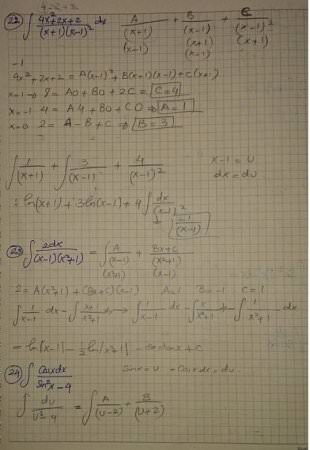 4-2+2
22) ∫ 4x²+2x+2 / (x+1)(x-1)² dx A/(x+1) + B/(x-1) + C/(x-1)²
(x-1) (x+1) (x+1)
(x-1)
-1
4x²+2x+2 = A(x-1)² + B(x+1)(x-1) + C(x+1)
x=1 → 8 = A0 + B0 + 2C = C=4
x=-1 4 = A4 + B0 + C0 ⇒ A=1
x=0 2 = A - B + C ⇒ B=3
∫ 1/(x+1) + ∫ 3/(x-1) + 4/(x-1)² x-1=u
dx=du
= ln(x+1) + 3ln|x-1| + 4∫ dx/(x-1)²
-1/(x-1)
23) ∫ 2dx/(x-1)(x²+1) = ∫ A/(x-1) + Bx+C/(x²+1)
(x²+1) (x-1)
2 = A(x²+1) + (Bx+C)(x-1) A=1 B=-1 C=1
∫ 1/x-1 dx - ∫ x+1/x²+1 dx → ∫ 1/x-1 dx - ∫ x/x²+1 dx - ∫ 1/x²+1 dx
= ln|x-1| - 1/2 ln|x²+1| - arctan x + C
24) ∫ Cosx dx / Sin²x-4 Sinx=u Cosx dx=du
∫ du/u²-4 = ∫ A/(u-2) + B/(u+2)